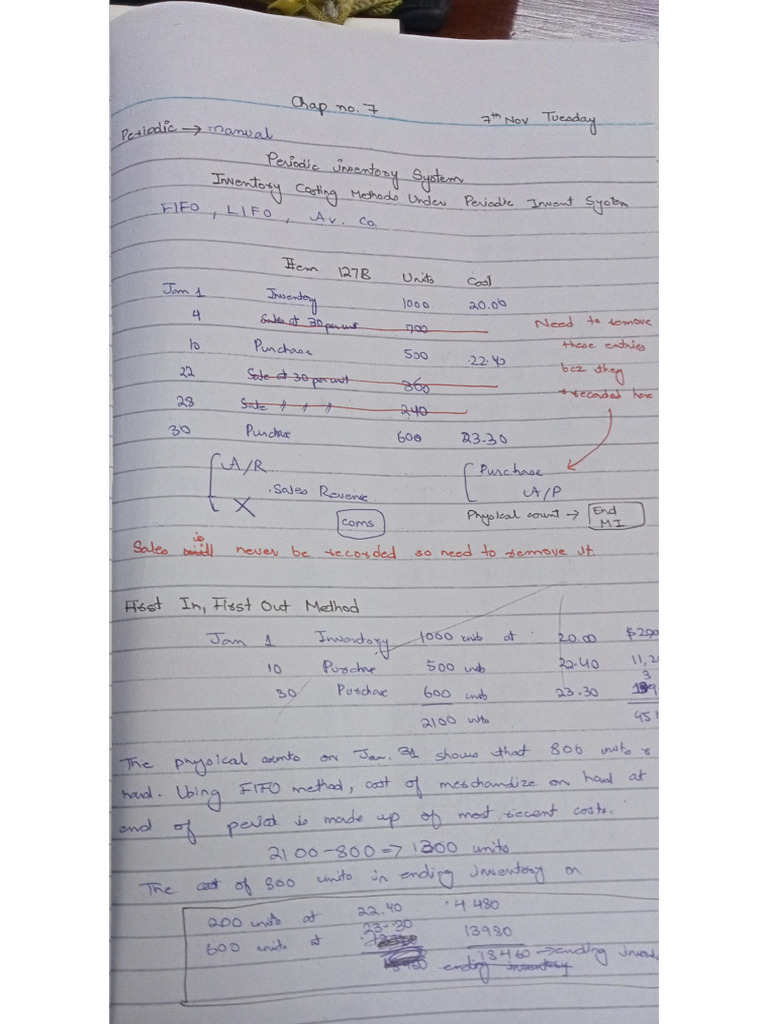 Chap no. 7
7th Nov Tuesday
Periodic → manual
Periodic inventory System
Inventory Casting Methods Under Periodic Invent System
FIFO, LIFO, Av. Co.
Item 127B Units Cost
Jan 1 Inventory 1000 20.00
4 Sales at 30 per unit 700
10 Purchase 500 22.40
22 Sale at 30 per unit 360
28 Sale 〃 〃 〃 240
30 Purchase 600 23.30
Need to remove
these entries
bcz they
recorded here
A/R
Sales Revenue
X
Purchase
A/P
Physical count → End MI
Sales is never be recorded so need to remove it.
First In, First Out Method
Jan 1 Inventory 1000 units at 20.00
10 Purchase 500 units 22.40
30 Purchase 600 units 23.30
2100 units
The physical counts on Jan. 31 shows that 800 units
hand. Using FIFO method, cost of merchandize on hand at
end of period is made up of most recent costs.
2100-800 => 1300 units
The cost of 800 units in ending inventory on
200 units at 22.40 4480
600 units at 23.30 13980
18460 → ending
ending inventory